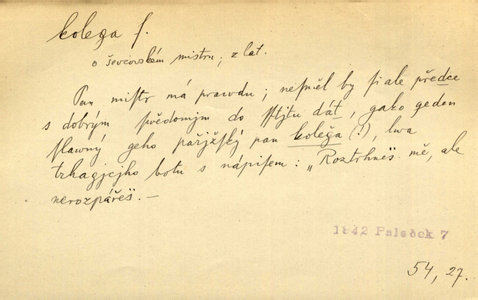 kolega f.
o ševcovském mistru; z lat.
Pan mistr má pravdu; nesměl by si ale předce
s dobrým swědomjm do sstjtu dát, gako geden
slawný geho pařjžský pan kolěga (!), lwa
trhagjcjho botu s nápisem: „Roztrhneš mě, ale
nerozpářeš. —
1842 Paleček 7
54, 27.